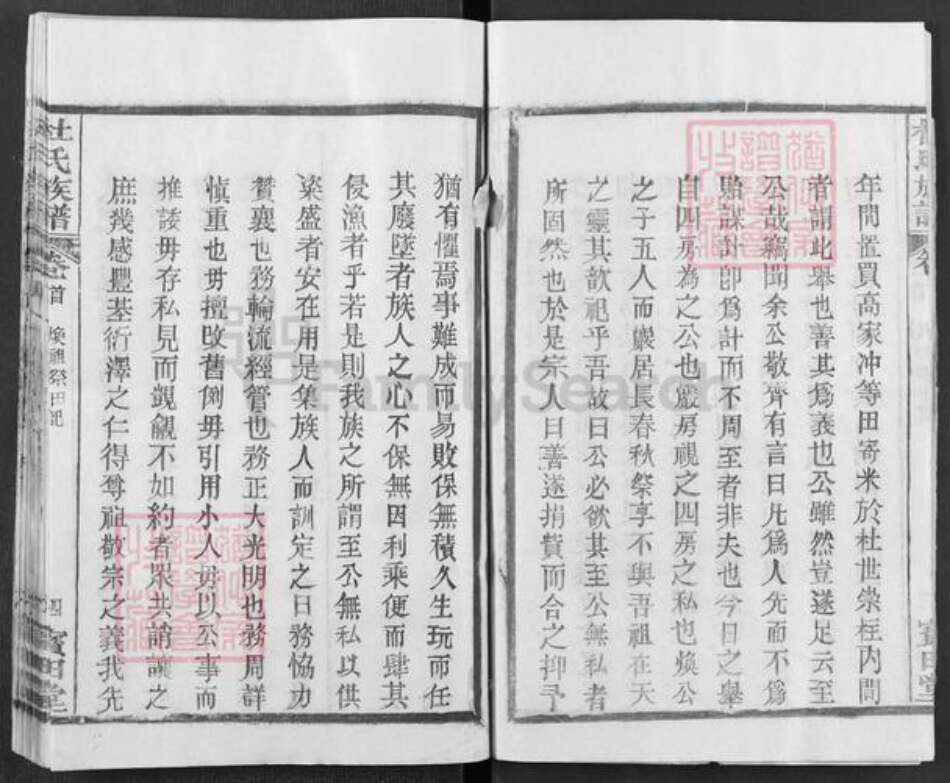 年間置買高家冲等田寄米於杜世崇枉內間
者謂此舉也善其爲義也公雖然豈遂足云至
公哉竊聞余公敬齊有言曰凡爲人先而不爲
貽謀計卽爲計而不周至者非夫也今日之舉
自四房為之公也嚴房視之四房之私也煥公
之子五人而嚴居長春秋祭享不與吾祖在天
之靈其歆祀乎吾故曰公必欲其至公無私者
所固然也於是宗人曰善遂捐貲而合之抑予
猶有懼焉事難成而易敗保無積久生玩而任
其廢墜者族人之心不保無因利乘便而肆其
侵漁者乎若是則我族之所謂至公無私以供
粢盛者安在用是集族人而訓定之曰務恊力
贊襄也務輪流經管也務正大光明也務周詳
慎重也毋擅改舊例毋引用小人毋以公事而
推諉毋存私見而覬覦不如約者眾共誚讓之
庶幾感豐基衍澤之仁得尊祖敬宗之義我先
杜氏族譜
卷首
煥祖祭田記
四
寳田堂
FamilySearch